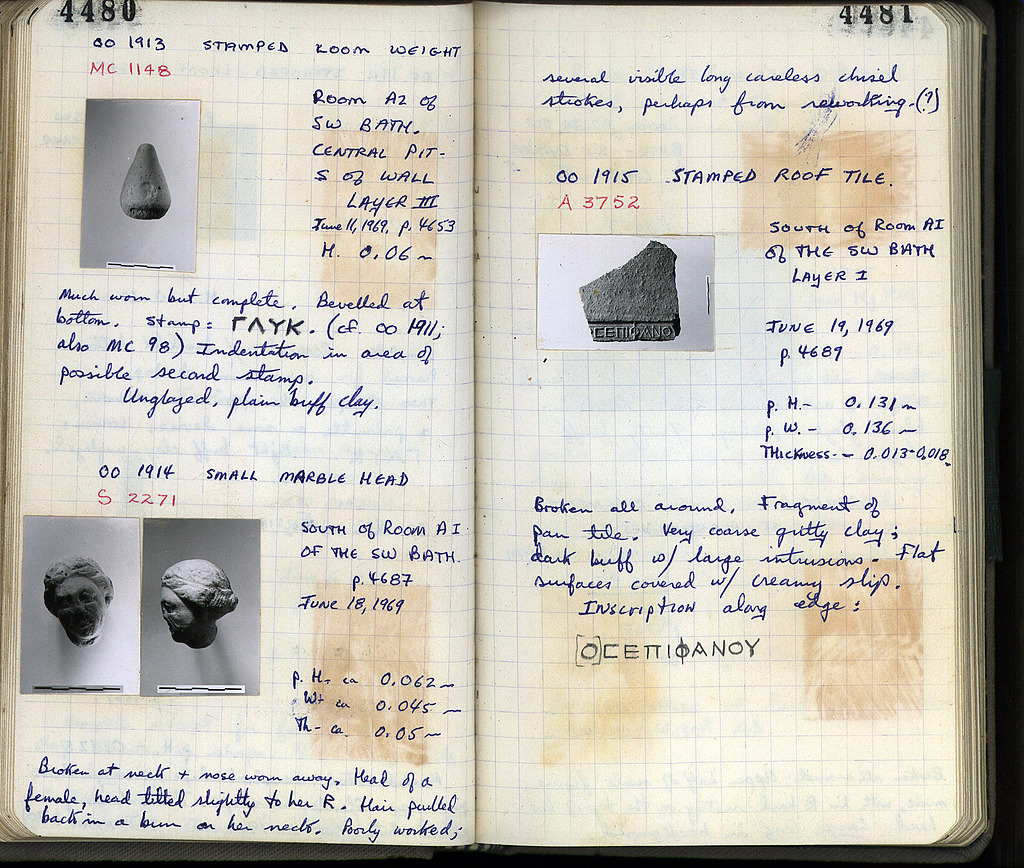 4480
OO 1913 STAMPED LOOM WEIGHT
MC 1148
ROOM A2 of
SW BATH.
CENTRAL PIT-
S of WALL
LAYER III
June 11, 1969, p. 4653
H. 0.06 m
Much worn but complete. Bevelled at
bottom. Stamp: ΓΛΥΚ. (cf. OO 1911;
also MC 98) Indentation in area of
possible second stamp.
Unglazed, plain buff clay.
OO 1914 SMALL MARBLE HEAD
S 2271
SOUTH OF ROOM A I
OF THE SW BATH.
p. 4687
JUNE 18, 1969
p. H- ca 0.062 m
W- ca 0.045 m
Th- ca. 0.05 m
Broken at neck + nose worn away. Head of a
female, head tilted slightly to her R. Hair pulled
back in a bun on her neck. Poorly worked;
4481
several visible long careless chisel
strokes, perhaps from reworking. (?)
OO 1915 STAMPED ROOF TILE.
A 3752
SOUTH of ROOM AI
of THE SW BATH
LAYER I
JUNE 19, 1969
p. 4689
p. H.- 0.131 m
p. W.- 0.136 m
THICKNESS- 0.013-0.018
CΕΠΙΦΑΝΟ
Broken all around. Fragment of
pan tile. Very coarse gritty clay;
dark buff w/ large intrusions. Flat
surfaces covered w/ creamy slip.
INSCRIPTION along edge:
[Ο]CΕΠΙΦΑΝΟΥ